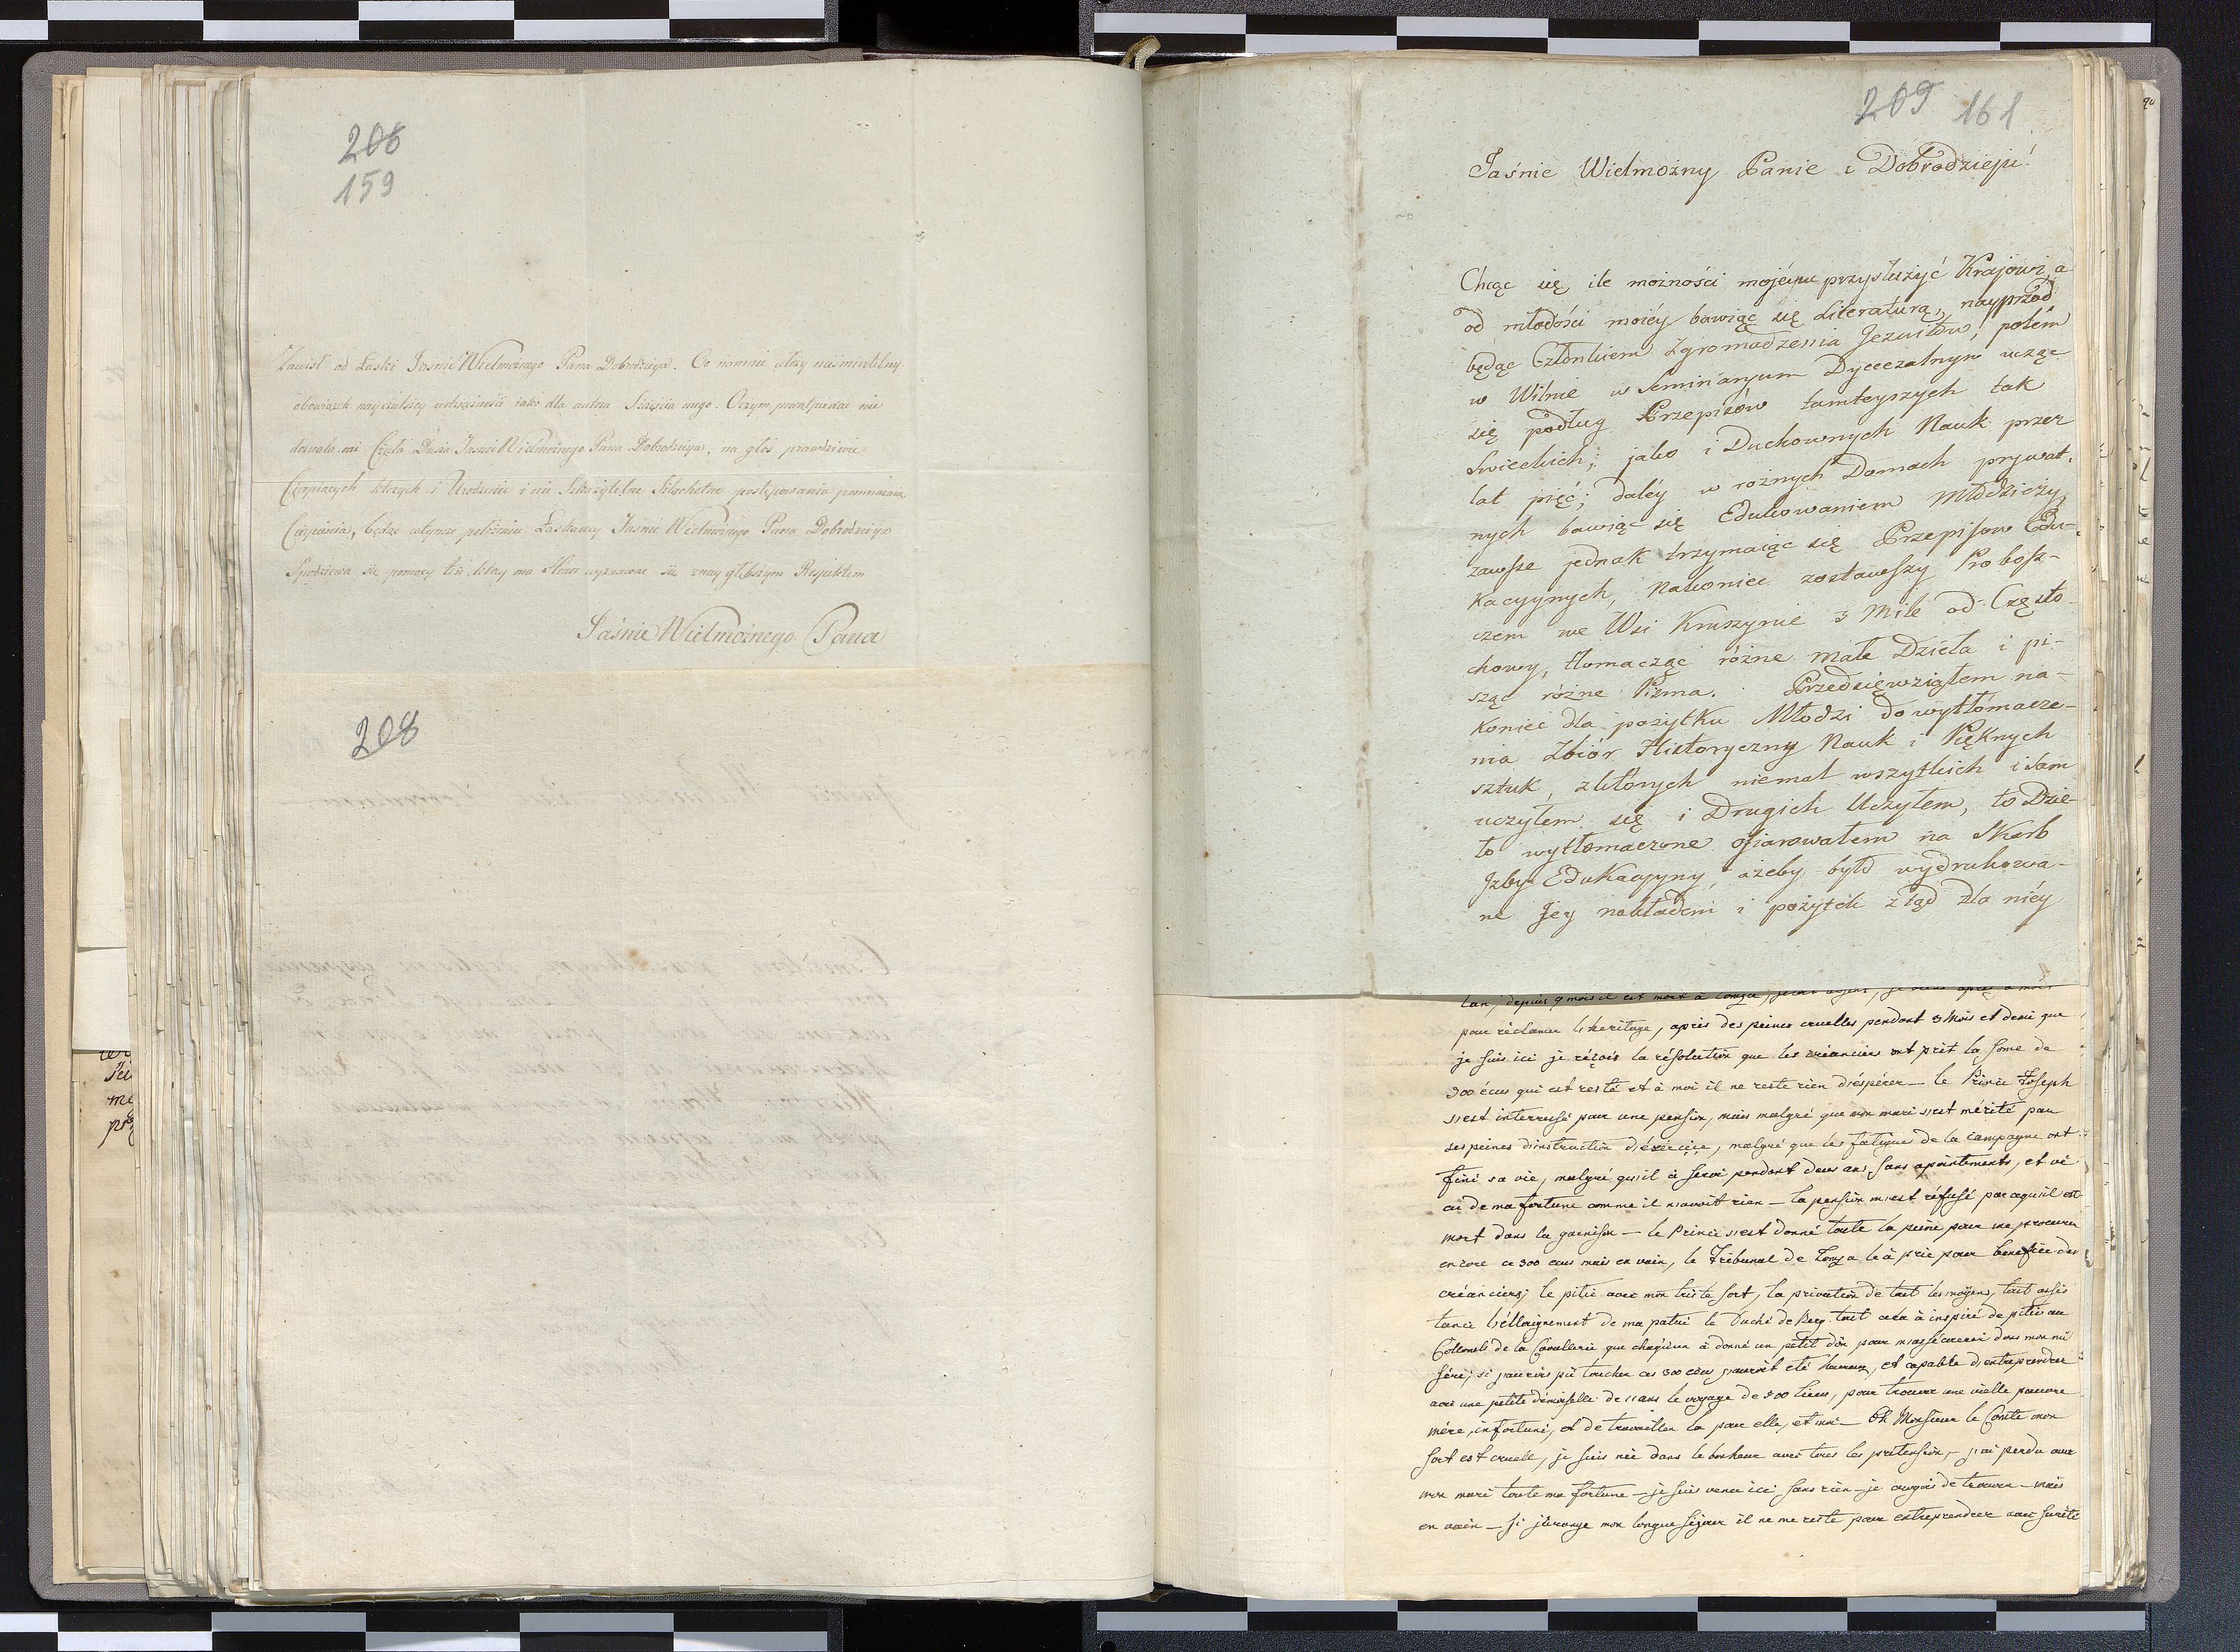 206
159
Zawisł od Łaski Jaśnie Wielmożnego Pana Dobrodzieja. Co nomine
obowiązek nayczulszy wdzięczności iako dla autora Szczęścia mego. O czym powątpiewać nie
dozwala mi Czuła Dusza Jaśnie Wielmożnego Pana Dobrodzieja, na głos prawdziwie
Cierpiących których i Urodzenie i nie Szlachetne postępowania pomnażaią
Cierpienia, będąc w tymże położeniu Łaskawey Jaśnie Wielmożnego Pana Dobrodzieja
Spodziewa się pomocy ten, który ma Honor wyznawać się z naygłębszym Respektem
Jaśnie Wielmożnego Pana
208
209 161
Jaśnie Wielmożny Panie i Dobrodzieju!
Chcąc się ile możności mojéy przysłużyć Krajowi, a
od młodości moiéy bawiąc się Literaturą, nayprzód
będąc Członkiem Zgromadzenia Jezuitów, potém
w Wilnie w Seminaryum Dyecezalnym ucząc
się podług Przepisów tamteyszych tak
Swieckich; jako i Duchownych Nauk przez
lat pięć; daléy w rożnych Domach prywat-
nych bawiąc się Edukowaniem Młodzieży,
zawsze jednak trzymaiąc się Przepisow Edu-
kacyynych, nakoniec zostawszy Probosz-
czem we Wsi Kruszynie 3 Mile od Często-
chowy, tłomacząc różne małe Dzieła i pi-
sząc różne Pisma. Przedsięwziąłem na-
koniec dla pożytku Młodzi do wytłómacze-
nia Zbiór Historyczny Nauk i Pięknych
sztuk, z których niemal wszytkich i sam
uczyłem się i Drugich Uczyłem, to Dzie-
ło wytłomaczone ofiarowałem na Skarb
Jzby Edukacyyny, ażeby było wydrukowa-
ne Jey nakładem i pożytek ztąd dla niéy
lan, depuis 9 mois il est mort à
pour réclamer l'heritage, après des peines cruelles pendant 3 Mois et demi que
je suis ici je réçois la résolution que les créanciers ont prit la some de
300 écus qui est resté et à moi il ne reste rien d'éspérer — le Prince Joseph
s'est interressé pour une pension, mais malgré que mon mari s'est mérité par
ses peines d'instruction d'éxércice, malgré que les fatigues de la campagne ont
fini sa vie, malgré qu'il à servi pendant deux ans sans apointements, et vé
cû de ma fortune comme il n'avoit rien — la pension m'est réfusé parcequ'il est
mort dans la garnison — le Prince s'est donné toute la peine pour me procurer
encore ce 300 ecus mais en vain, le Tribunal de Lomza le à prie pour benefice des
créanciers; le pitié avec mon triste sort, la privation de tout les moÿens, tout assis
tance l'élloignement de ma patrie le Duché de Berg tout cela à inspiré de pitié au
Collonels de la Cavallerie que chaqu'un à donné un petit dôn pour m'as secourir dans mon mi
sére; si j'aurois pû toucher ces 300 ecus j'auroit eté heureux, et capable d'entreprendre
avec une petite démoiselle de 11 ans le voyage de 300 lieus, pour trouver une vielle pauvre
mére, infortuné, et de travailler la pour elle, et moi — Oh Monsieur le Comte mon
sort est cruelle, je suis née dans le bonheur avec tous les pretension, — j'ai perdu avec
mon mari toute ma fortune — je suis venu ici sans rien — je croyois de trouver — mais
en vain — si j'arrange mon longue séjour il ne me reste pour entreprendrer avec sureté